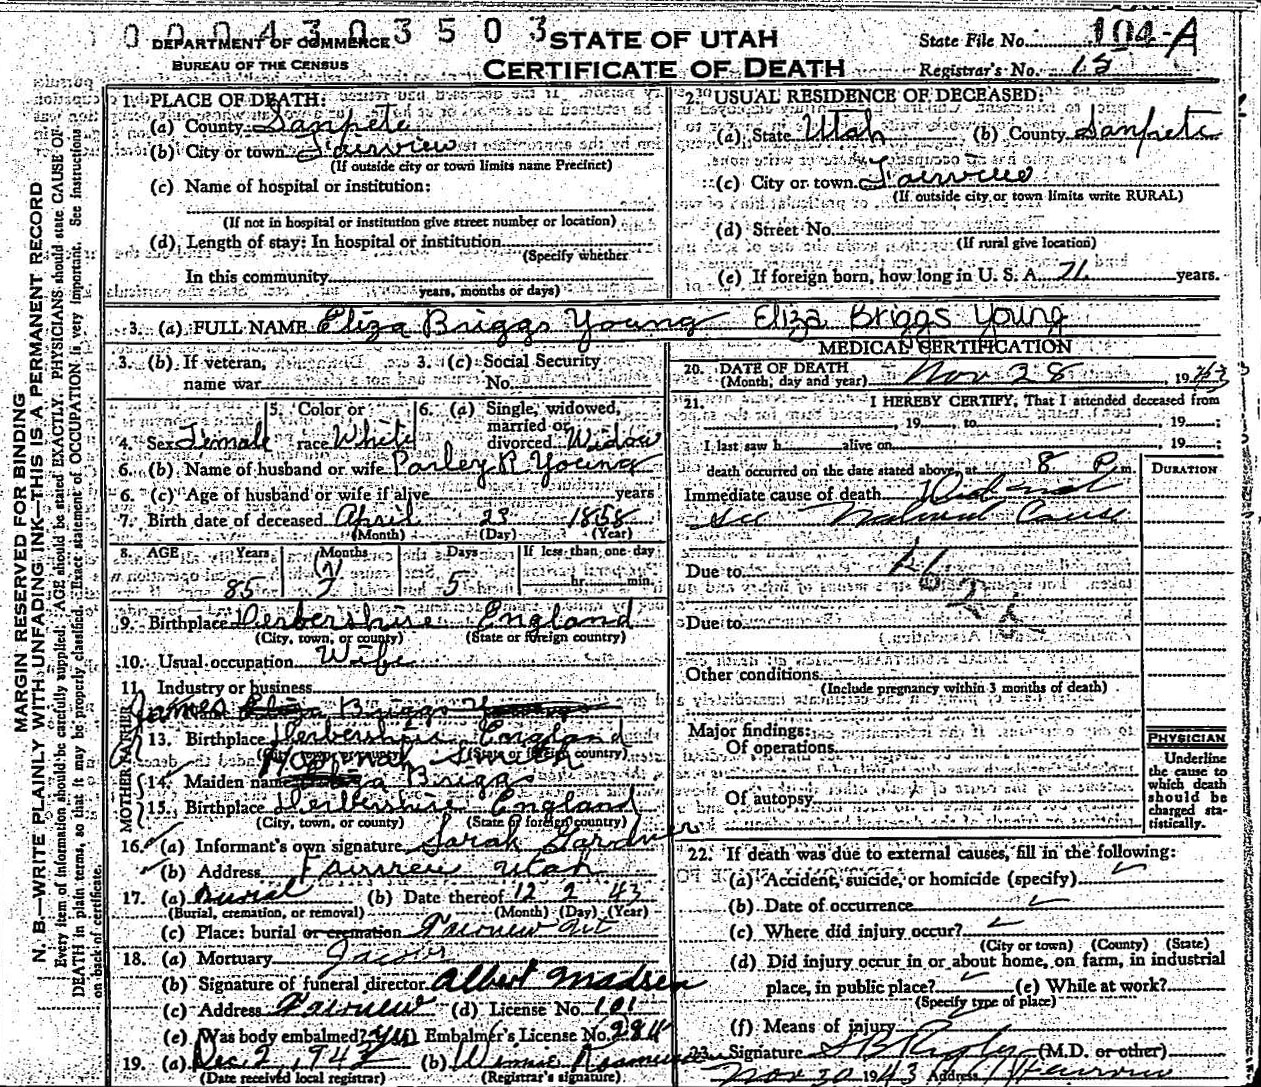 0 0 0 4 3 0 3 5 0 3
DEPARTMENT OF COMMERCE
BUREAU OF THE CENSUS
STATE OF UTAH
CERTIFICATE OF DEATH
State File No. 104-A
Registrar's No. 15
MARGIN RESERVED FOR BINDING
N. B.—WRITE PLAINLY WITH UNFADING INK—THIS IS A PERMANENT RECORD
Every item of information should be carefully supplied. AGE should be stated EXACTLY. PHYSICIANS should state CAUSE OF
DEATH in plain terms, so that it may be properly classified. Exact statement of OCCUPATION is very important. See instructions
on back of certificate.
1. PLACE OF DEATH:
(a) County Sanpete
(b) City or town Fairview
(If outside city or town limits name Precinct)
(c) Name of hospital or institution:
(If not in hospital or institution give street number or location)
(d) Length of stay: In hospital or institution
(Specify whether
In this community
years, months or days)
2. USUAL RESIDENCE OF DECEASED:
(a) State Utah (b) County Sanpete
(c) City or town Fairview
(If outside city or town limits write RURAL)
(d) Street No.
(If rural give location)
(e) If foreign born, how long in U. S. A. 71 years.
3. (a) FULL NAME Eliza Briggs Young Eliza Briggs Young
3. (b) If veteran, name war
3. (c) Social Security No.
4. Sex Female
5. Color or race White
6. (a) Single, widowed, married or divorced Widow
6. (b) Name of husband or wife Parley R Young
6. (c) Age of husband or wife if alive years
7. Birth date of deceased April 23 1858
(Month) (Day) (Year)
8. AGE Years Months Days If less than one day
85 7 5 hr. min.
9. Birthplace Derbershire England
(City, town, or county) (State or foreign country)
10. Usual occupation Wife
11. Industry or business
FATHER
James Name Eliza Briggs Young
13. Birthplace Derbershire England
(City, town, or county) (State or foreign country)
MOTHER
Hannah Smith
14. Maiden name Eliza Briggs
15. Birthplace Derbershire England
(City, town, or county) (State or foreign country)
16. (a) Informant's own signature Sarah Gardner
(b) Address Fairview Utah
17. (a) Burial (b) Date thereof 12 2 43
(Burial, cremation, or removal) (Month) (Day) (Year)
(c) Place: burial or cremation Fairview Ut
18. (a) Mortuary Jacobs
(b) Signature of funeral director Albert Madsen
(c) Address Fairview (d) License No. 101
(e) Was body embalmed? Yes Embalmer's License No. 284
19. (a) Dec 2, 1943 (b) Winnie Rasmussen
(Date received local registrar) (Registrar's signature)
MEDICAL CERTIFICATION
20. DATE OF DEATH
(Month, day and year) Nov 28, 1943
21. I HEREBY CERTIFY, That I attended deceased from
, 19 to , 19 ;
I last saw h alive on , 19 ;
death occurred on the date stated above, at 8 P m.
DURATION
Immediate cause of death Did not
see Natural Cause
Due to
Due to
Other conditions
(Include pregnancy within 3 months of death)
Major findings:
Of operations
Of autopsy
PHYSICIAN
Underline
the cause to
which death
should be
charged sta-
tistically.
22. If death was due to external causes, fill in the following:
(a) Accident, suicide, or homicide (specify)
(b) Date of occurrence
(c) Where did injury occur?
(City or town) (County) (State)
(d) Did injury occur in or about home, on farm, in industrial
place, in public place? (e) While at work?
(Specify type of place)
(f) Means of injury
23. Signature (M.D. or other)
Nov 30 1943 Address Fairview